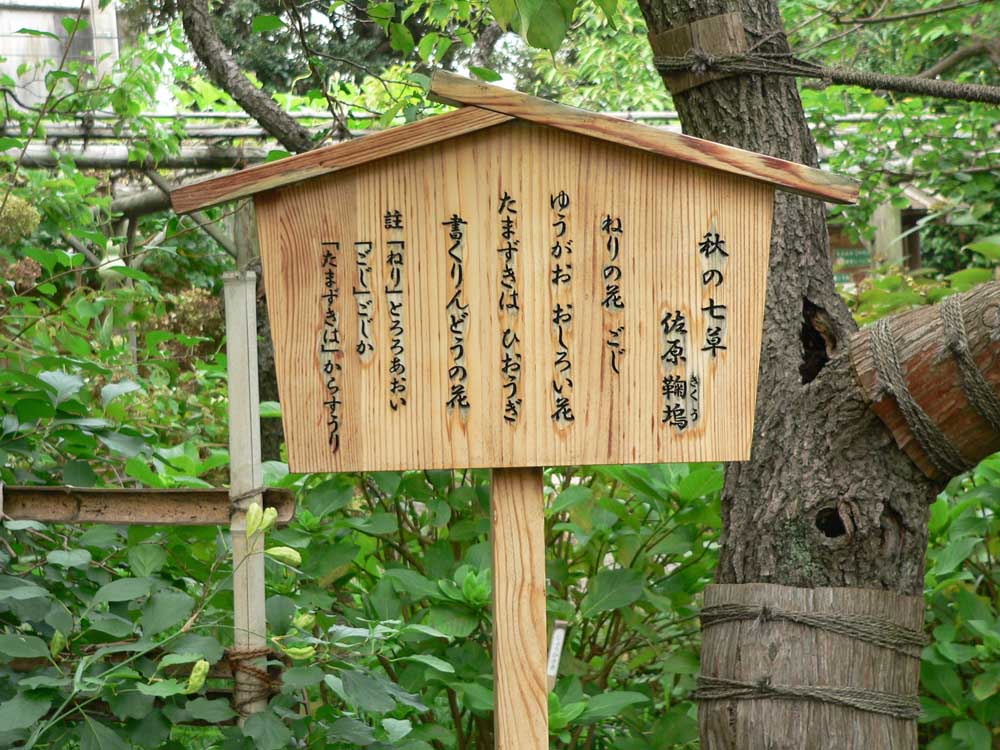 秋の七草
佐原 鞠塢
きくう
ねりの花 ごじ
ゆうがお おしろい花
たまずきは ひおうぎ
書くりんどうの花
註「ねり」とろろあおい
「ごじ」ごじか
「たまずきは」からすうり